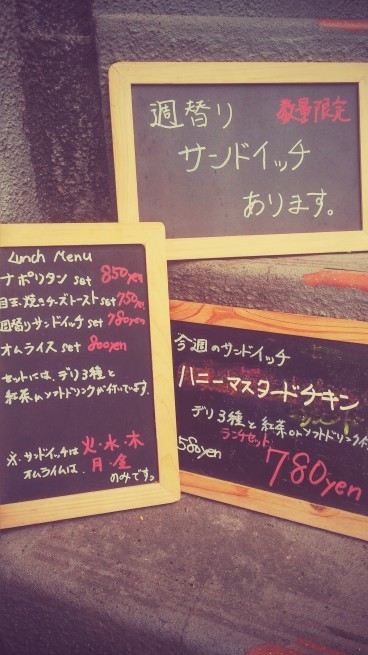 週替り 数量限定
サンドイッチ
あります。
Lunch Menu
ナポリタン set 850yen
目玉焼きチーズトースト set 750yen
週替りサンドイッチ set 780yen
オムライス set 800yen
セットには、デリ3種と
紅茶orソフトドリンクが付いています。
※サンドイッチは 火・水・木
オムライスは 月・金
のみです。
今週のサンドイッチ
ハニーマスタードチキン
デリ3種と紅茶orソフトドリンク付
ランチセット
580yen 780yen